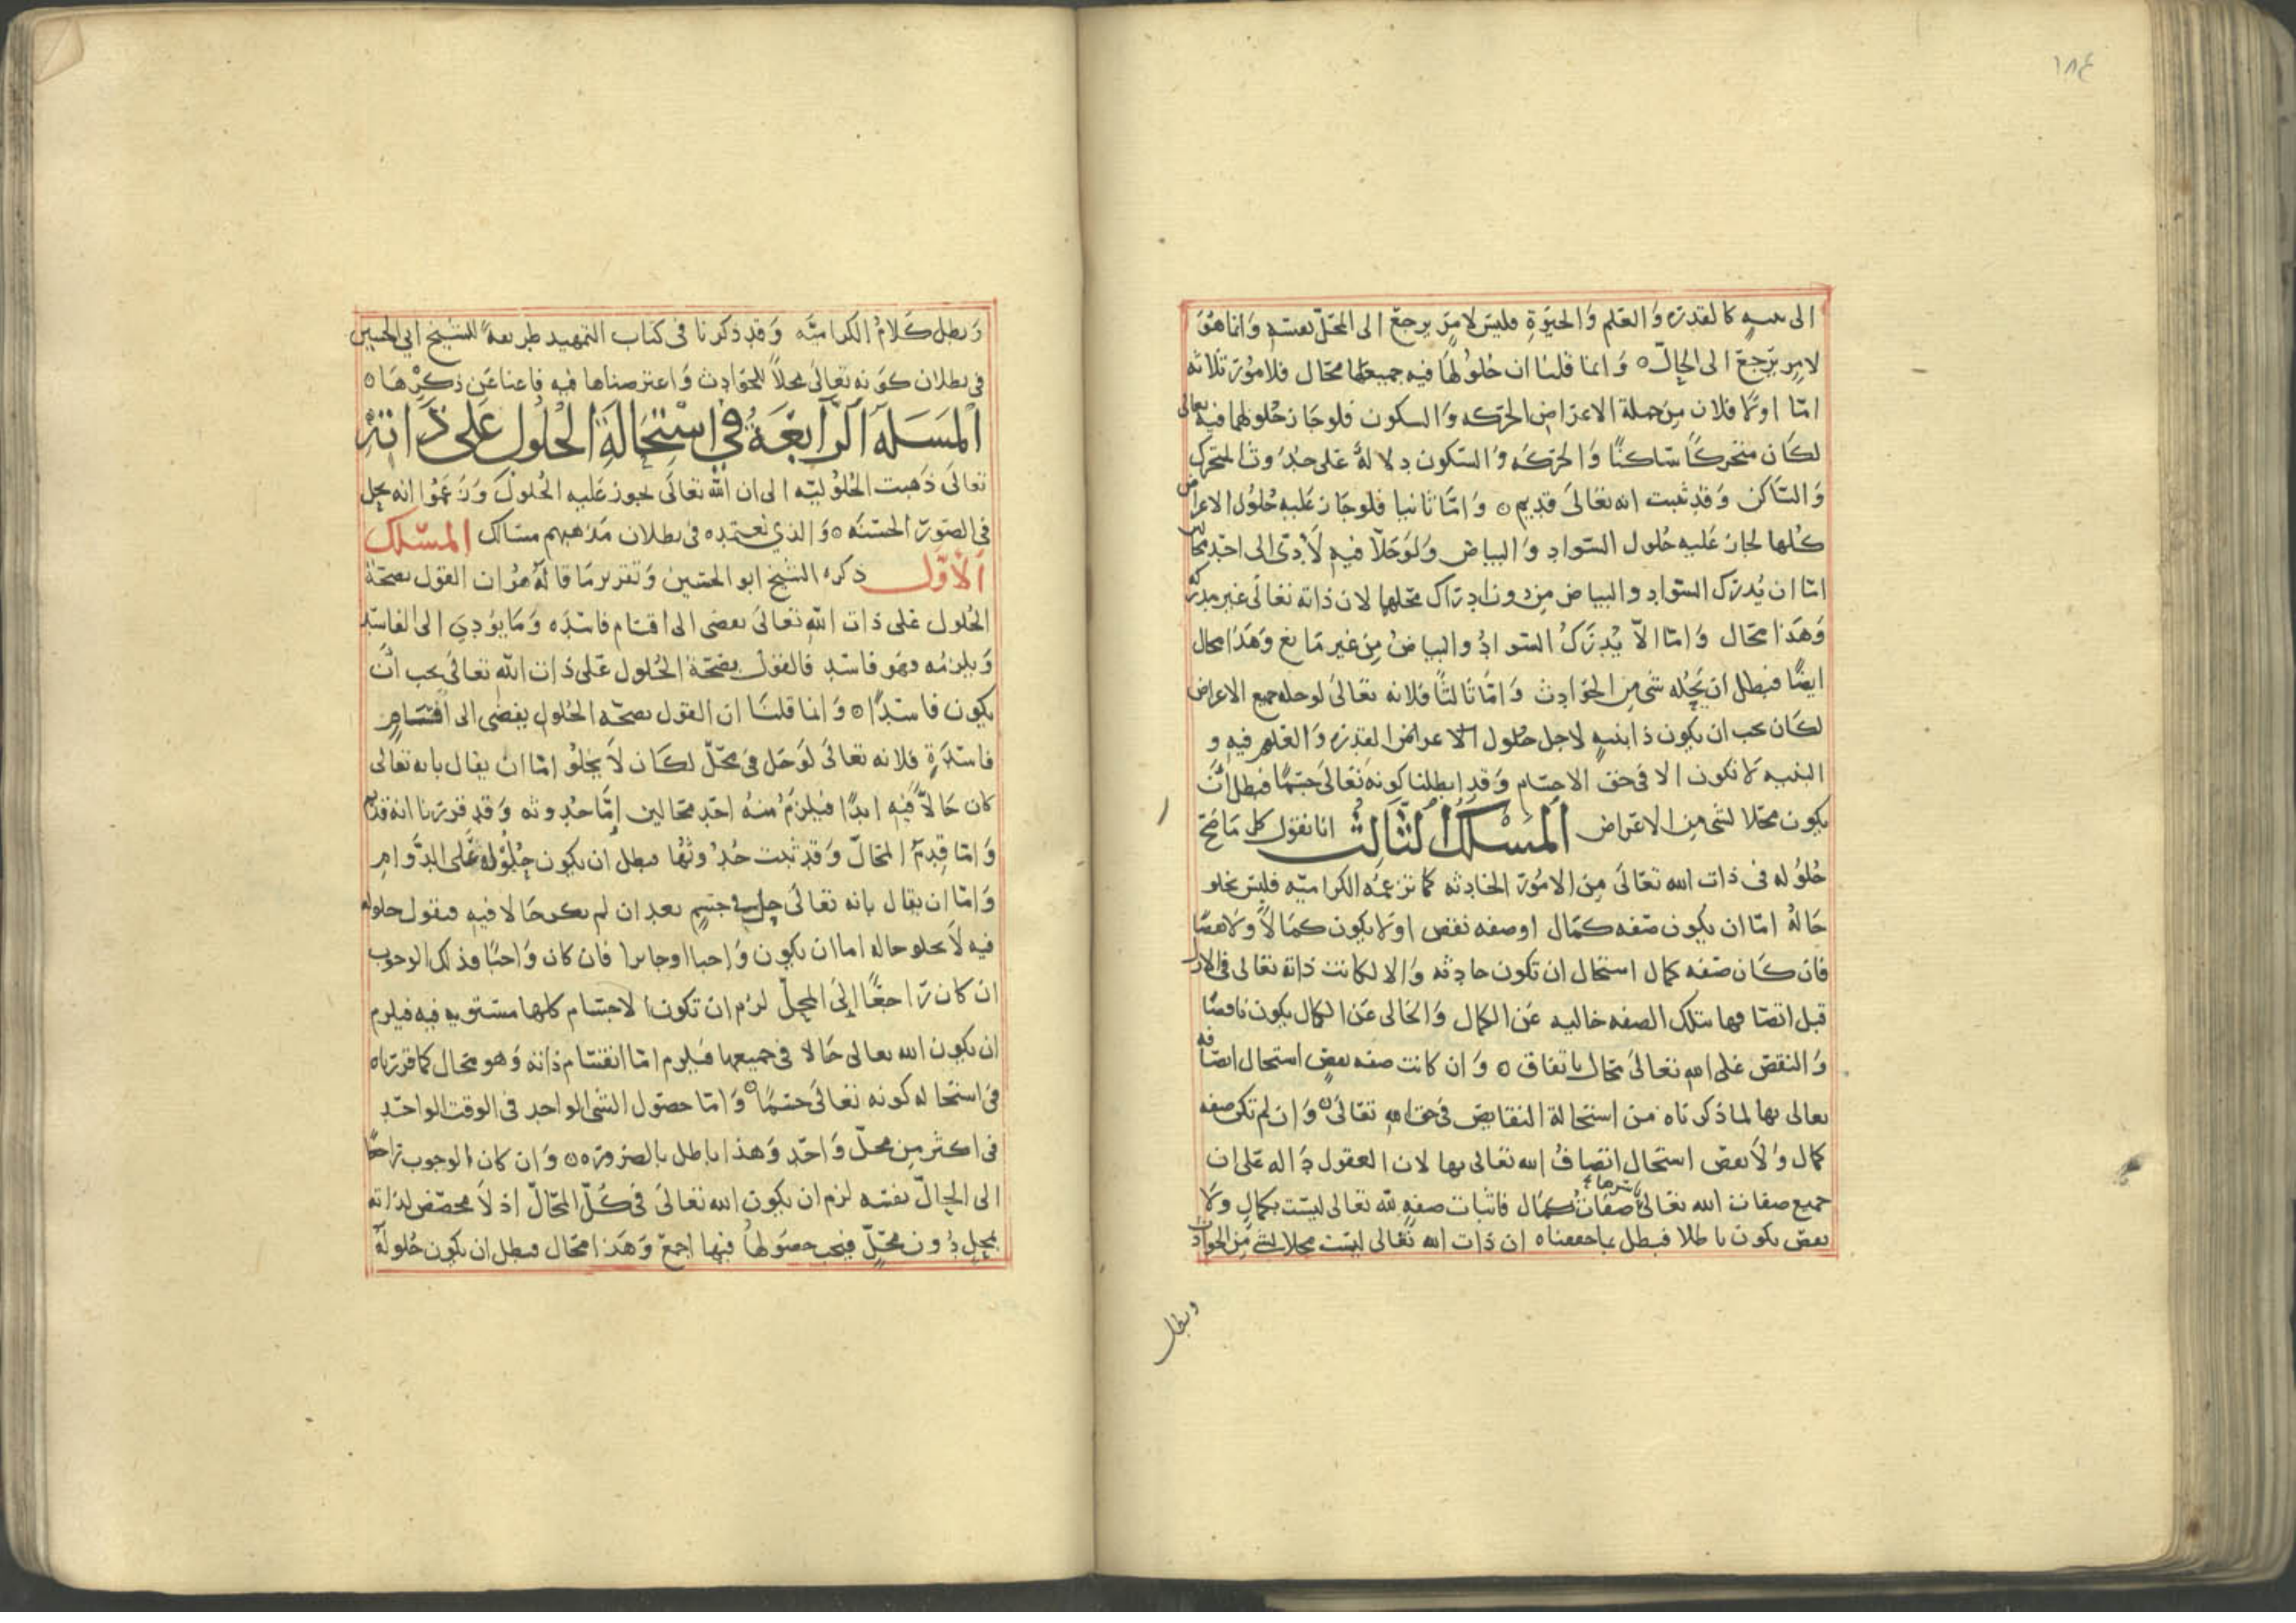 ١٨٤
الى بنيه كالقدرة والعلم والحيوة فليس لامر يرجع الى المحل بعينه وانما هو
لامر يرجع الى الحال ٥ وانما قلنا ان حلولها فيه جميعها محال فلامور ثلاثه
امّا اولا فلان من جملة الاعراض الحركه والسكون فلو جاز حلولهما فيه تعالى
لكان متحركًا ساكنًا والحركه والسكون دلالة على حدوث المتحرك
والساكن وقد ثبت انه تعالى قديم ٥ وامّا ثانيا فلو جاز عليه حلول الاعراض
كلها لجاز عليه حلول السواد والبياض ولو حلّا فيه لأدى الى احد محالين
امّا ان يُدرك السواد والبياض من دون ادراك محلهما لان ذاته تعالى غير مدركه
وهذا محال وامّا الّا يُدرك السواد والبياض من غير مانع وهذا محال
ايضًا فبطل ان يَحُله شى من الحوادث وامّا ثالثًا فلانه تعالى لو حله جميع الاعراض
لكان يجب ان يكون ذا بنيه لاجل حلول الاعراض القدرة والعلم فيه و
البنيه لا تكون الا فى حق الاجسام وقد ابطلنا كونه تعالى جسمًا فبطل ان
يكون محلا لشى من الاعراض المسلك الثالث انا نقول كل ما صَحّ
حُلُوله فى ذات الله تعالى من الامور الحادثه كما تزعمه الكراميّه فليس يخلو
حَالهُ امّا ان يكون صفه كمال او صفه نقص او لا يكون كمالاً ولا نقصًا
فان كان صفه كمال استحال ان تكون حادثه والا لكانت ذاته تعالى فى الازل
قبل اتصافها بتلك الصفه خاليه عن الكمال والخالى عن الكمال يكون ناقصًا
والنقص على الله تعالى محال باتفاق ٥ وان كانت صفه نقص استحال اتصافه
تعالى بها لما ذكرناه من استحالة النقايص فى حق الله تعالى ٥ وان لم تكن صفه
كمال ولا نقص استحال اتصاف الله تعالى بها لان العقول داله على ان
جميع صفات الله تعالى باسرها صفات كمال فاثبات صفه لله تعالى ليست بكمال ولا
نقص يكون باطلا فبطل بما حققناه ان ذات الله تعالى ليست محلا لشى من الحوادث
وبطل
وبطل كلامُ الكراميّه وقد ذكرنا فى كتاب التمهيد طريقةً للشيخ ابى الحسين
فى بطلان كونه تعالى محلاً للحوادث واعترضناها فيه فاغنا عن ذكرها ٥
المسله الرابعة فى استحالة الحلول على ذاته
تعالى ذهبت الحُلُوليّه الى ان الله تعالى يجوز عليه الحُلول وزعموا انه يحل
فى الصورة الحسنه ٥ والذي نعتمده فى بطلان مذهبهم مسالك المسلك
الأول ذكره الشيخ ابو الحسين وتقرير ما قاله هو ان القول بصحة
الحُلول على ذات الله تعالى يفضى الى اقسام فاسده وما يؤدي الى الفاسد
ويلزمه فهو فاسد فالقول بصحة الحُلول على ذات الله تعالى يجب أن
يكون فاسدًا ٥ وانما قلنا ان القول بصحّه الحلول يفضى الى اقسام
فاسدةٍ فلانه تعالى لو حَل فى محلّ لكان لا يخلُو امّا ان يقال بانه تعالى
كان حَالاًّ فيه ابدًا فيلزم منه احد محالين إمّا حدوثه وقد قررنا انه قديم
وامّا قِدم المحالّ وقد ثبت حُدوثها فبطل ان يكون حلوله على الدوام
وامّا ان يقال بانه تعالى حل فى جسم بعد ان لم يكن حالا فيه فنقول حلوله
فيه لا يخلو حاله اما ان يكون واجبا او جايزا فان كان واجبًا فذلك الوجوب
ان كان راجعًا إلى المحلّ لزم ان تكون الاجسام كلها مستويه فيه فيلزم
ان يكون الله تعالى حَالا فى جميعها فيلزم امّا انقسام ذاته وهو محال كما قررناه
فى استحاله كونه تعالى جسمًا ٥ وامّا حصول الشى الواحد فى الوقت الواحد
فى اكثر من محلّ واحد وهذا باطل بالضروره ٥ وان كان الوجوب راجعًا
الى الحالّ نفسه لزم ان يكون الله تعالى فى كُلّ المحالّ اذ لا مخصّص لذاته
بمحل دون محلّ فيجب حصولها فيها اجمع وهذا محال فبطل ان يكون حُلوله